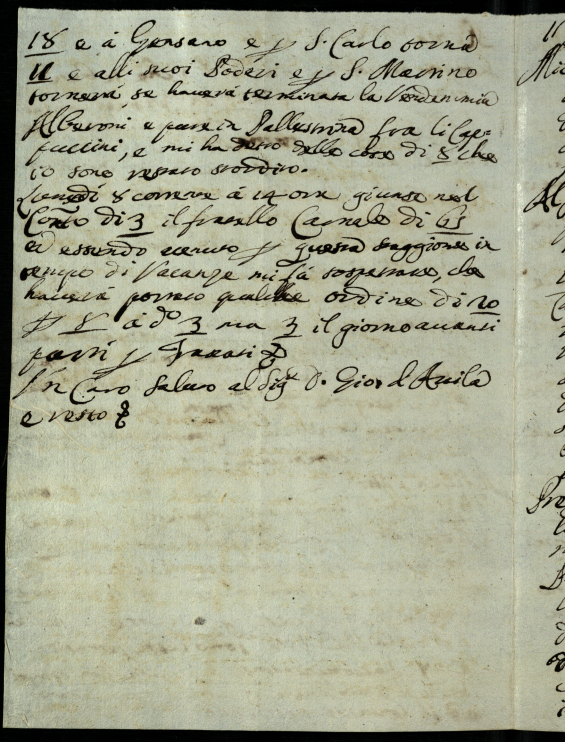 18 e à Gensano e p S. Carlo tornerà
11 e alli suoi Poderi e p S. Martino
tornerà, se haverà terminata la Vendemmia
Alberoni è pure in Pallestrina fra li Cap-
puccini, e mi ha detto delle cose di 8 che
io sono restato stordito.
Lunedi 8 corrente à 14 ore giunse nel
di 3 il fratello Carnale di 61
ed essendo venuto p questa staggione in
tempo di Vacanze mi fà sospettare, che
haverà portato qualche ordine di 20
p 8 à do 3 ma 3 il giorno avanti
partì p Frascati
Un Caro saluto al Sigr D. Gior d'Avila
e resto
11
Al